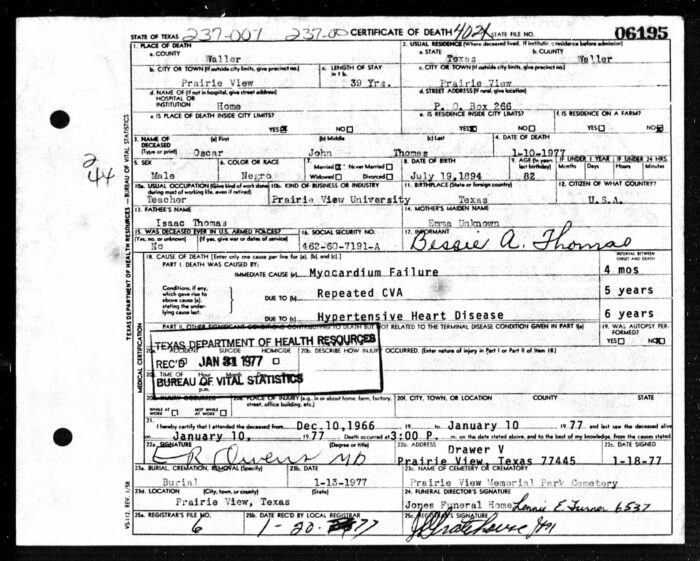 STATE OF TEXAS 237-001 237-00 CERTIFICATE OF DEATH 4021 STATE FILE NO. 06195
1. PLACE OF DEATH 2. USUAL RESIDENCE (Where deceased lived. If institution: residence before admission)
a. COUNTY a. STATE b. COUNTY
Waller Texas Waller
b. CITY OR TOWN (If outside city limits, give precinct no.) c. LENGTH OF STAY in 1 b. c. CITY OR TOWN (If outside city limits, give precinct no.)
Prairie View 39 Yrs. Prairie View
d. NAME OF (If not in hospital, give street address) HOSPITAL OR INSTITUTION d. STREET ADDRESS (If rural, give location)
Home P. O. Box 266
e. IS PLACE OF DEATH INSIDE CITY LIMITS? e. IS RESIDENCE INSIDE CITY LIMITS? f. IS RESIDENCE ON A FARM?
YES NO YES NO YES NO
3. NAME OF DECEASED (Type or print) (a) First (b) Middle (c) Last 4. DATE OF DEATH
Oscar John Thomas 1-10-1977
5. SEX 6. COLOR OR RACE 7. Married Never Married 8. DATE OF BIRTH 9. AGE (In years last birthday) IF UNDER 1 YEAR IF UNDER 24 HRS
Widowed Divorced Months Days Hours Minutes
Male Negro July 19,1894 82
10a. USUAL OCCUPATION (Give kind of work done during most of working life, even if retired) 10b. KIND OF BUSINESS OR INDUSTRY 11. BIRTHPLACE (State or foreign country) 12. CITIZEN OF WHAT COUNTRY?
Teacher Prairie View University Texas U.S.A.
13. FATHER'S NAME 14. MOTHER'S MAIDEN NAME
Isaac Thomas Emma Unknown
15. WAS DECEASED EVER IN U.S. ARMED FORCES? 16. SOCIAL SECURITY NO. 17. INFORMANT
(Yes, no, or unknown) (If yes, give war or dates of service)
No 462-60-7191-A Bessie A. Thomas
18. CAUSE OF DEATH [Enter only one cause per line for (a), (b), and (c).] INTERVAL BETWEEN ONSET AND DEATH
PART I. DEATH WAS CAUSED BY:
IMMEDIATE CAUSE (a) Myocardium Failure 4 mos
Conditions, if any, which gave rise to above cause (a), stating the underlying cause last.
DUE TO (b) Repeated CVA 5 years
DUE TO (c) Hypertensive Heart Disease 6 years
PART II. OTHER SIGNIFICANT CONDITIONS CONTRIBUTING TO DEATH BUT NOT RELATED TO THE TERMINAL DISEASE CONDITION GIVEN IN PART I(a) 19. WAS AUTOPSY PERFORMED?
YES NO
TEXAS DEPARTMENT OF HEALTH RESOURCES
REC'D JAN 31 1977
BUREAU OF VITAL STATISTICS
ACCIDENT SUICIDE HOMICIDE 20b. DESCRIBE HOW INJURY OCCURRED. (Enter nature of injury in Part I or Part II of item 18.)
TIME OF
p.m.
INJURY OCCURRED PLACE OF INJURY (e.g., in or about home, farm, factory, street, office building, etc.) 20f. CITY, TOWN, OR LOCATION COUNTY STATE
WHILE AT WORK NOT WHILE AT WORK
21. I hereby certify that I attended the deceased from Dec.10,1966 19 to January 10 19 77 and last saw the deceased alive
on January 10, 19 77 Death occurred at 3:00 P. m. on the date stated above, and to the best of my knowledge, from the causes stated.
22a. SIGNATURE (Degree or title) 22b. ADDRESS
E R Owens MD Drawer V
Prairie View, Texas 77445 1-18-77
23a. BURIAL, CREMATION, REMOVAL (Specify) 23b. DATE 23c. NAME OF CEMETERY OR CREMATORY
Burial 1-13-1977 Prairie View Memorial Park Cemetery
23d. LOCATION (City, town, or county) (State) 24. FUNERAL DIRECTOR'S SIGNATURE
Prairie View, Texas Jones Funeral Home Lonnie E. Turner 6537
25a. REGISTRAR'S FILE NO. 25b. DATE REC'D BY LOCAL REGISTRAR 25c. REGISTRAR'S SIGNATURE
6 1-20-77
2
44
TEXAS DEPARTMENT OF HEALTH RESOURCES — BUREAU OF VITAL STATISTICS
MEDICAL CERTIFICATION
VS-112, REV. 1/58